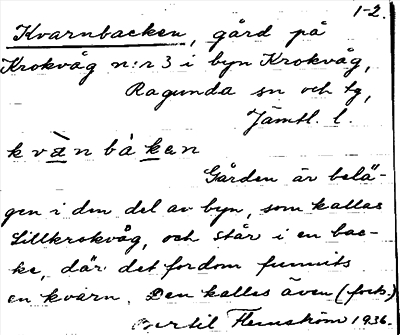 1-2.
Kvarnbacken, gård på
Krokvåg n:r 3 i byn Krokvåg,
Ragunda sn och tg,
Jämtl. l.
kvànbàkan
Gården är belä-
gen i den del av byn, som kallas
Lillkrokvåg, och står i en bac-
ke, där det fordom funnits
en kvarn. Den kallas även (forts.)
Bertil Flemström 1936.